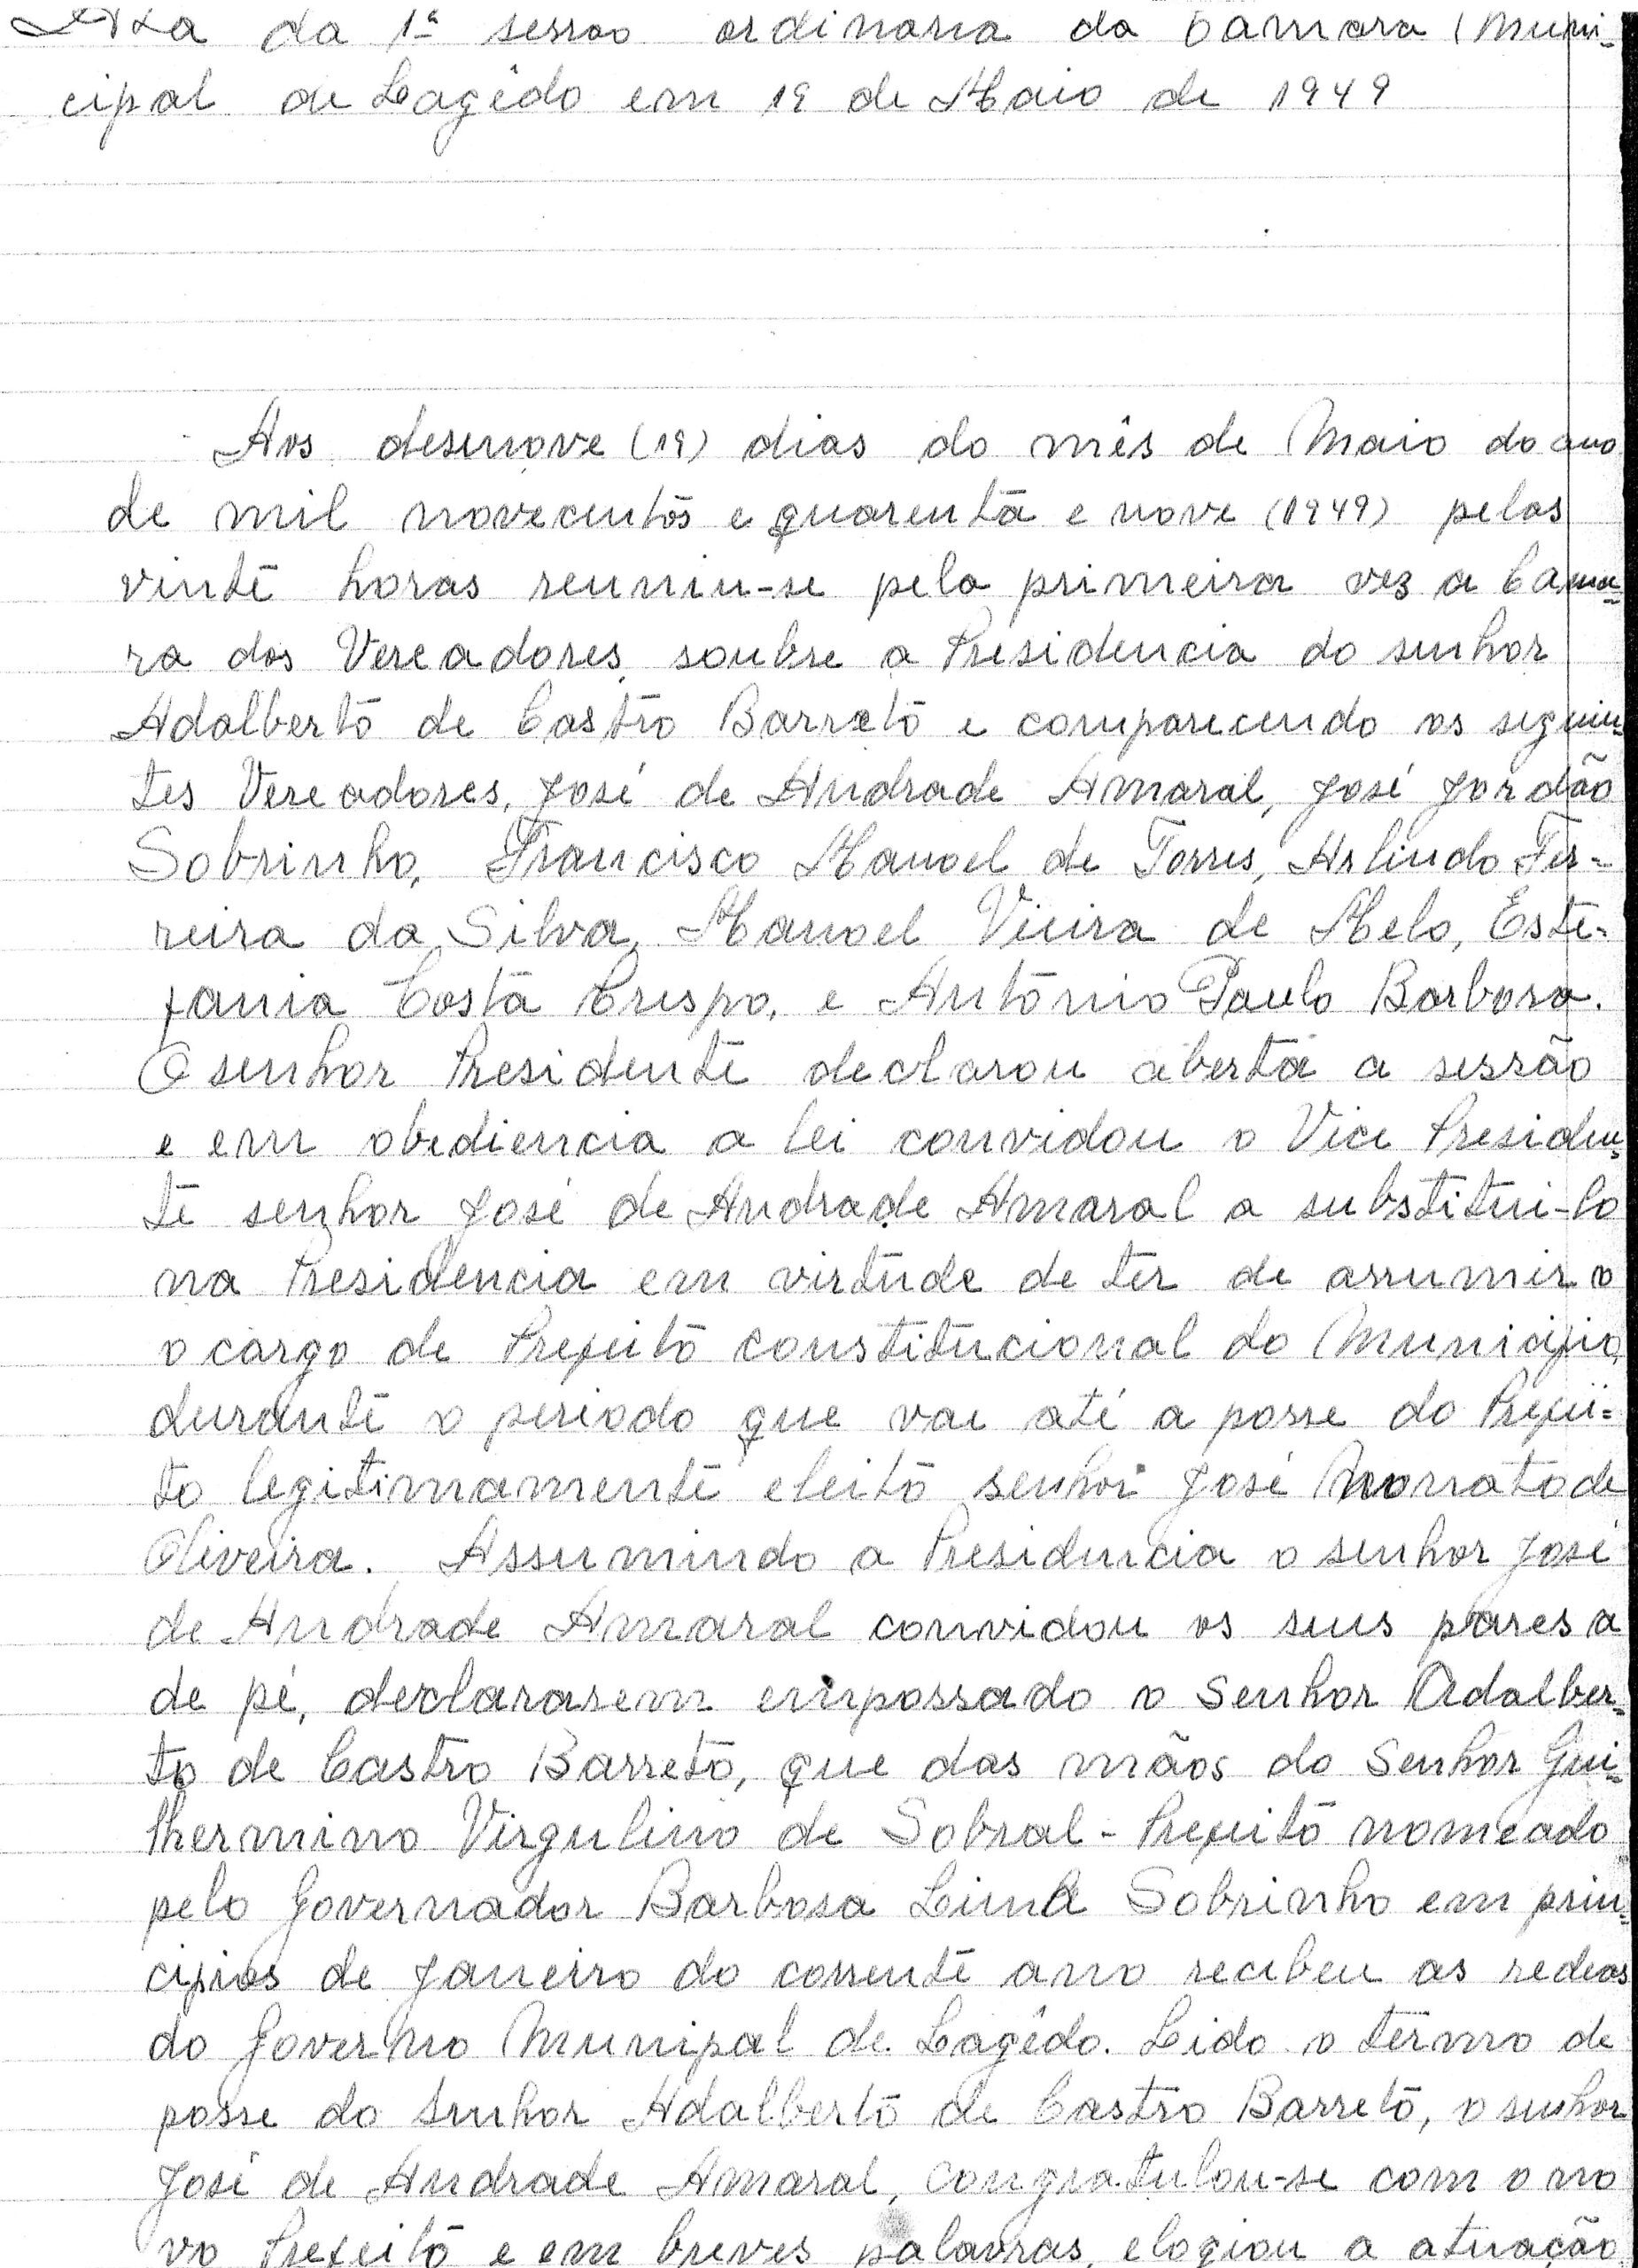 Ata da 1ª sessão ordinaria da Camara Muni-
cipal de Lagêdo em 19 de Maio de 1949
Aos desenove (19) dias do mês de Maio do ano
de mil novecentos e quarenta e nove (1949) pelas
vinte horas reuniu-se pela primeira vez a Cama-
ra dos Vereadores soubre a Presidencia do senhor
Adalberto de Castro Barreto e comparecendo os seguin-
tes Vereadores, José de Andrade Amaral, José Jordão
Sobrinho, Francisco Manoel de Torres, Arlindo Fer-
reira da Silva, Manoel Vieira de Melo, Este-
fania Costa Crespo, e Antônio Paulo Barbosa.
O senhor Presidente declarou aberta a sessão
e em obediencia a lei convidou o Vice Presiden-
te senhor José de Andrade Amaral a substitui-lo
na Presidencia em virtude de ter de assumir o
o cargo de Prefeito constitucional do Municipio,
durante o periodo que vai até a posse do Prefei-
to legitimamente eleito senhor José Nonato de
Oliveira. Assumindo a Presidencia o senhor José
de Andrade Amaral convidou os seus pares a
de pé, declararem empossado o Senhor Adalber-
to de Castro Barreto, que das mãos do Senhor Gui-
lhermino Virgulino de Sobral - Prefeito nomeado
pelo Governador Barbosa Lima Sobrinho em prin-
cipios de Janeiro do corrente ano recebeu as redeas
do Governo Munipal de Lagêdo. Lido o têrmo de
posse do Senhor Adalberto de Castro Barreto, o senhor
José de Andrade Amaral, congratulou-se com o no
vo Prefeito e em breves palavras, elogiou a atuação